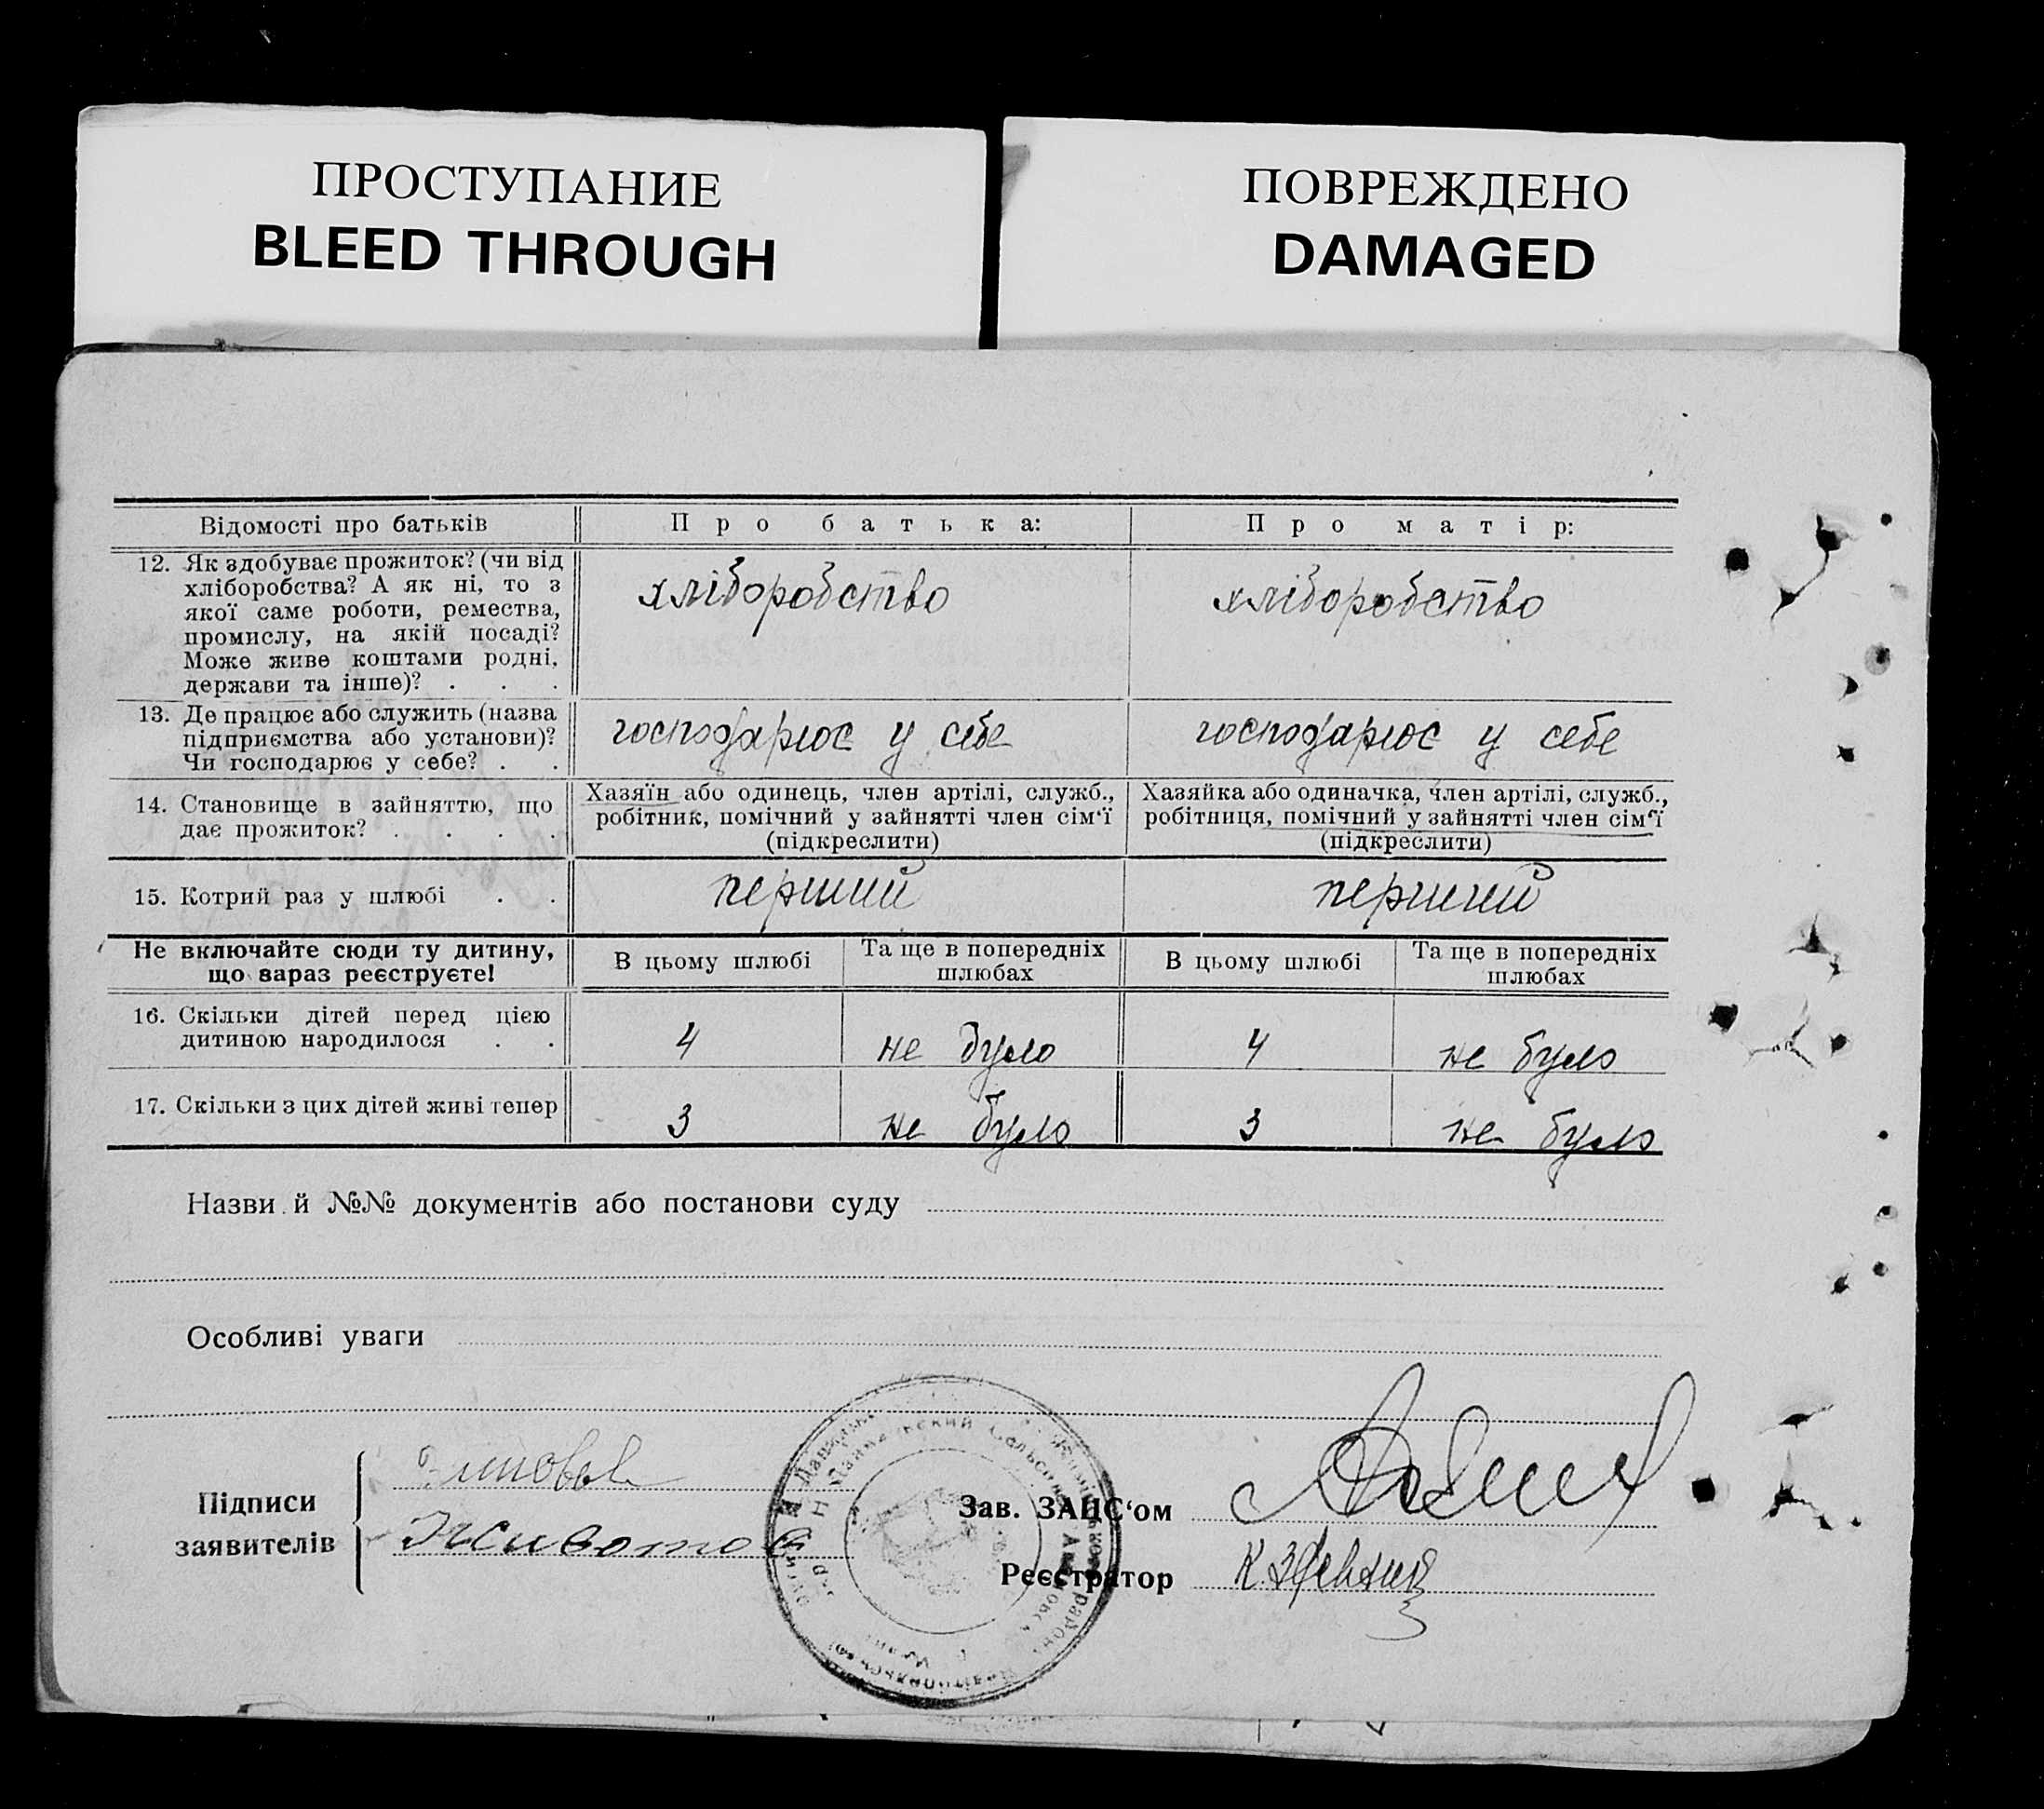 ПРОСТУПАНИЕ
BLEED THROUGH
ПОВРЕЖДЕНО
DAMAGED
Відомості про батьків
Про батька:
Про матір:
12. Як здобуває прожиток? (чи від
хліборобства? А як ні, то з
якої саме роботи, ремества,
промислу, на якій посаді?
Може живе коштами родні,
держави та інше)? . . .
хліборобство
хліборобство
13. Де працює або служить (назва
підприємства або установи)?
Чи господарює у себе? . .
господарює у себе
господарює у себе
14. Становище в зайняттю, що
дає прожиток? . . . .
Хазяїн або одинець, член артілі, служб.,
робітник, помічний у зайнятті член сім‘ї
(підкреслити)
Хазяйка або одиначка, член артілі, служб.,
робітниця, помічний у зайнятті член сім‘ї
(підкреслити)
15. Котрий раз у шлюбі . .
перший
перший
Не включайте сюди ту дитину,
що зараз реєструєте!
В цьому шлюбі
Та ще в попередніх
шлюбах
В цьому шлюбі
Та ще в попередніх
шлюбах
16. Скільки дітей перед цією
дитиною народилося . .
4
не було
4
не було
17. Скільки з цих дітей живі тепер
3
не було
3
не було
Назви й №№ документів або постанови суду
Особливі уваги
Підписи
заявителів
Животов
Зав. ЗАЦС‘ом
Реєстратор